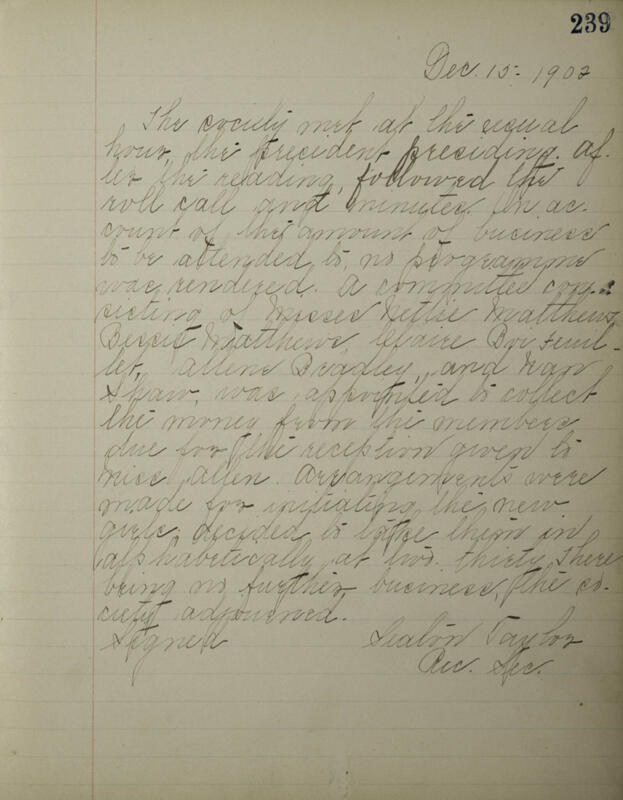 239
Dec. 15. 1902
The society met at the usual
hour, the president presiding. Af-
ter the reading, followed the
roll call and minutes. On ac-
count of the amount of business
to be attended to, no programme
was rendered. A committee con-
sisting of Misses Nettie Matthews,
Bessie Matthews, Claire Bou Feuil-
let, Allene Bradley, and Nan
Shaw, was appointed to collect
the money from the members
due for the reception given to
Miss Allen. Arrangements were
made for initiating the new
girls; decided to take them in
alphabetically at two thirty. There
being no further business, the so-
ciety adjourned.
Signed Taylor
Rec. Sec.